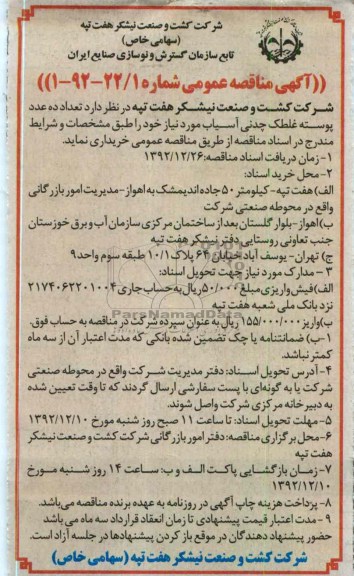 شرکت کشت و صنعت نیشکر هفت تپه
(سهامی خاص)
تابع سازمان گسترش و نوسازی صنایع ایران
((آگهی مناقصه عمومی شماره ۲۲/۱-۹۲-۱))
شرکت کشت و صنعت نیشکر هفت تپه در نظر دارد تعداد ده عدد
پوسته غلطک چدنی آسیاب مورد نیاز خود را طبق مشخصات و شرایط
مندرج در اسناد مناقصه از طریق مناقصه عمومی خریداری نماید.
۱- زمان دریافت اسناد مناقصه:۱۳۹۲/۱۲/۲۶
۲- محل خرید اسناد:
الف) هفت تپه- کیلومتر ۵۰ جاده اندیمشک به اهواز-مدیریت امور بازرگانی
واقع در محوطه صنعتی شرکت
ب) اهواز-بلوار گلستان بعد از ساختمان مرکزی سازمان آب و برق خوزستان
جنب تعاونی روستایی دفتر نیشکر هفت تپه
ج) تهران- یوسف آباد خیابان ۶۴ پلاک ۱۰/۱ طبقه سوم واحد ۹
۳- مدارک مورد نیاز جهت تحویل اسناد:
الف) فیش واریزی مبلغ ۵۰/۰۰۰ ریال به حساب جاری ۲۱۷۴۰۶۳۲۰۱۰۰۴
نزد بانک ملی شعبه هفت تپه
ParsNamadData
ب) واریز ۱۵۵/۰۰۰/۰۰۰ ریال به عنوان سپرده شرکت در مناقصه به حساب فوق.
ب-۱) ضمانتنامه یا چک تضمین شده بانکی که مدت اعتبار آن از سه ماه
کمتر نباشد.
۴- آدرس تحویل اسناد: دفتر مدیریت شرکت واقع در محوطه صنعتی
شرکت یا به گونه‌ای با پست سفارشی ارسال گردند که تا وقت تعیین شده
به دبیرخانه مرکزی شرکت واصل شوند.
۵- مهلت تحویل اسناد: تا ساعت ۱۱ صبح روز شنبه مورخ ۱۳۹۲/۱۲/۱۰
۶- محل برگزاری مناقصه: دفتر امور بازرگانی شرکت کشت و صنعت نیشکر
هفت تپه
۷- زمان بازگشایی پاکت الف و ب: ساعت ۱۴ روز شنبه مورخ
۱۳۹۲/۱۲/۱۰
۸- پرداخت هزینه چاپ آگهی در روزنامه به عهده برنده مناقصه می‌باشد.
۹- مدت اعتبار قیمت پیشنهادی تا زمان انعقاد قرارداد سه ماه می باشد
حضور پیشنهاد دهندگان در موقع باز کردن پیشنهادها در جلسه آزاد است.
شرکت کشت و صنعت نیشکر هفت تپه (سهامی خاص)